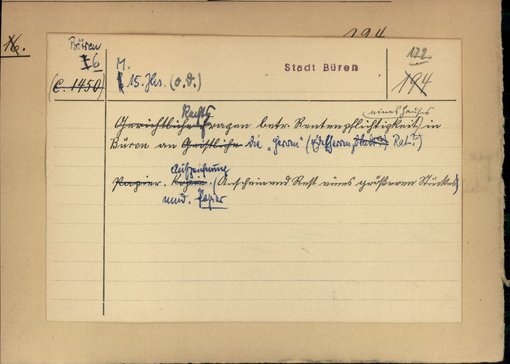 16.
194
Büren
I 6
(c. 1450)
M.
15. Jhs. (o. D.)
Stadt Büren
122
194
Rechts eines Hauses
Gerichtliche Fragen betr. Rentenpflichtigkeit in
Büren an Geistliche die "Herren" (Edelherren, Rat?)
Aufzeichnung
Papier. (Anscheinend Rest eines größeren Stückes)
mnd. Papier